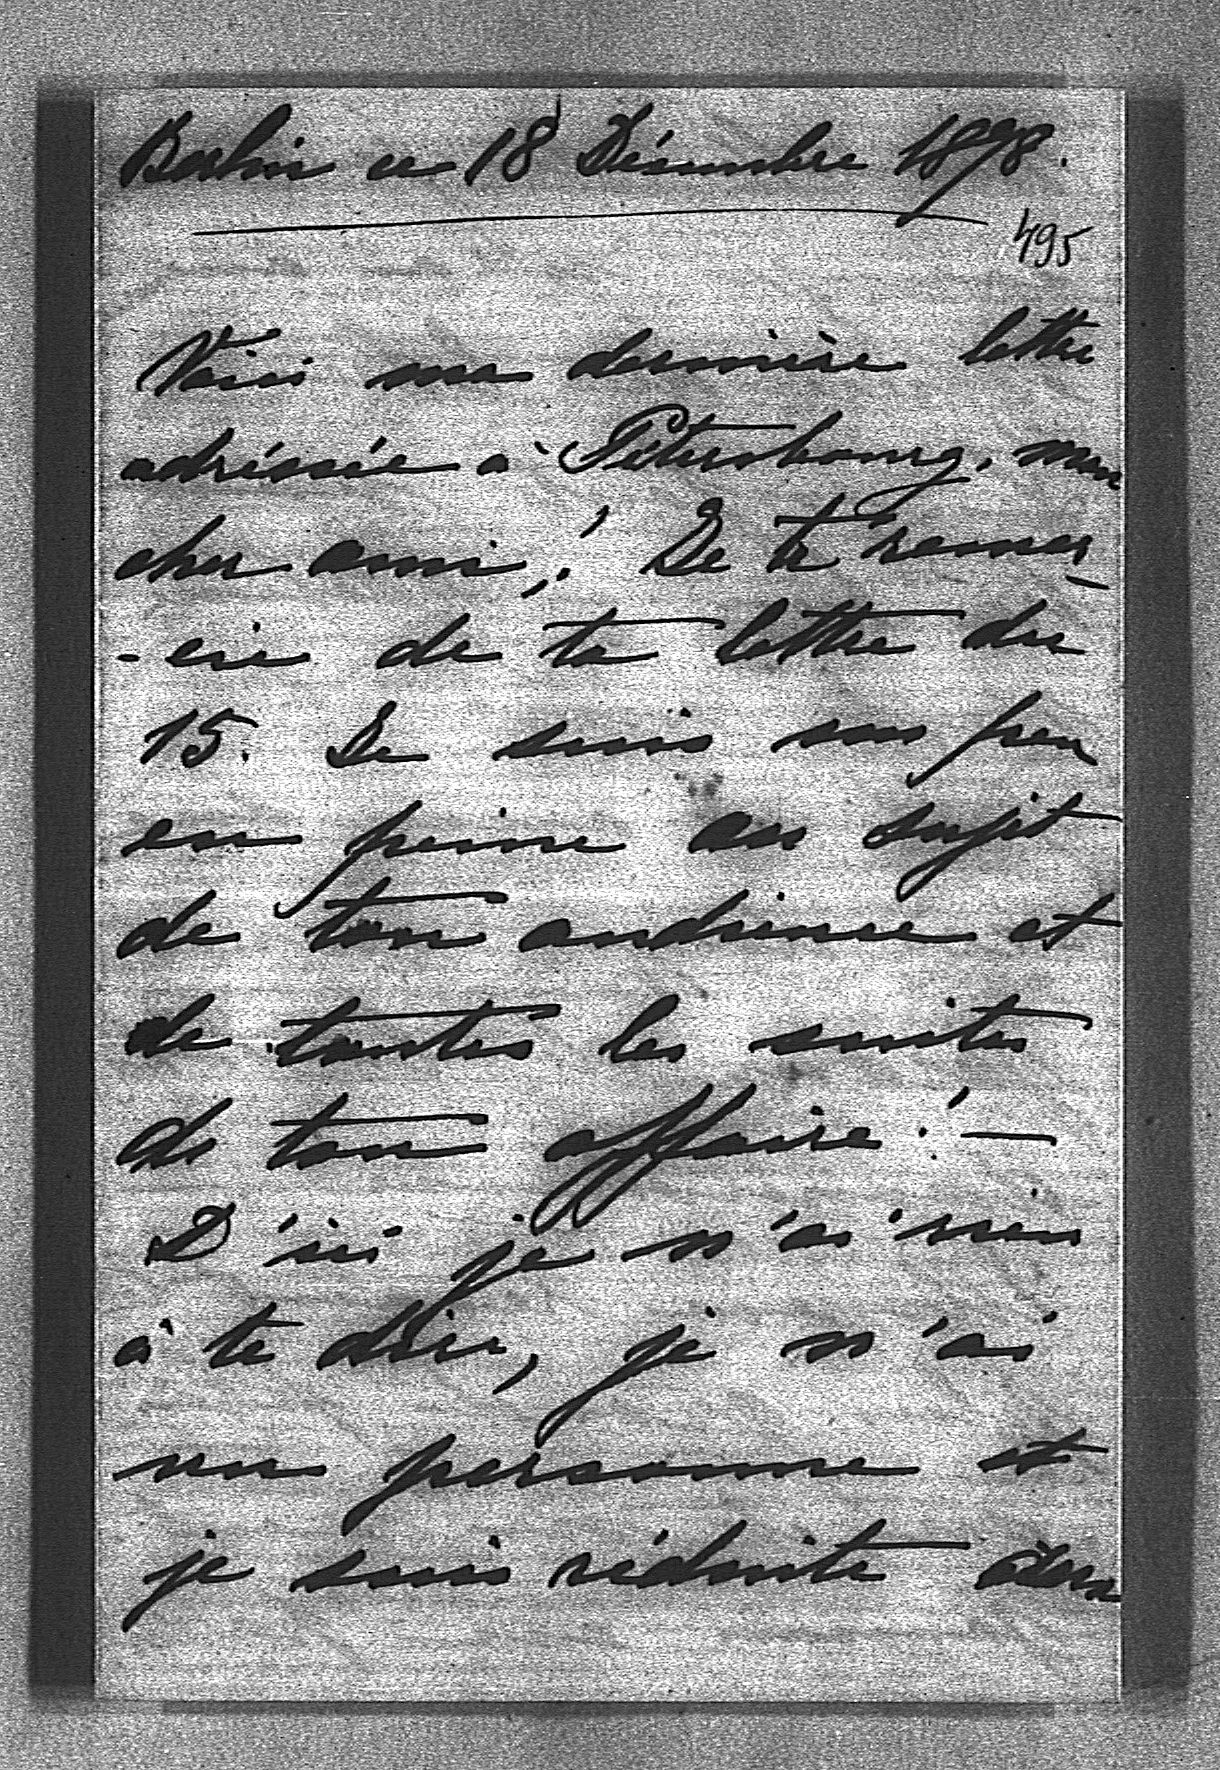 Berlin ce 18 Décembre 1898.
495
Voici ma dernière lettre
adréssée à Pétersbourg, mon
cher ami,! Je te remer-
-cie de ta lettre du
15. Je suis un peu
en peine au sujet
de ton audience et
de toutes les suites
de ton affaire! —
D'ici je n'ai rien
à te dire, je n'ai
vu personne et
je suis réduite aux